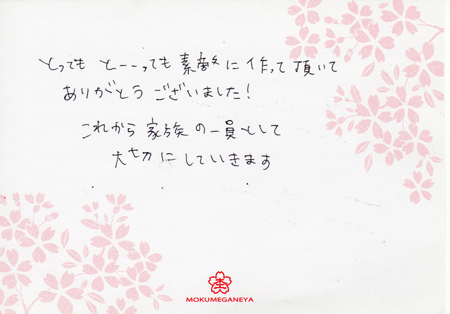 とっても と－－っても素敵に作って頂いて
ありがとうございました！
これから家族の一員として
大切にしていきます
MOKUMEGANEYA